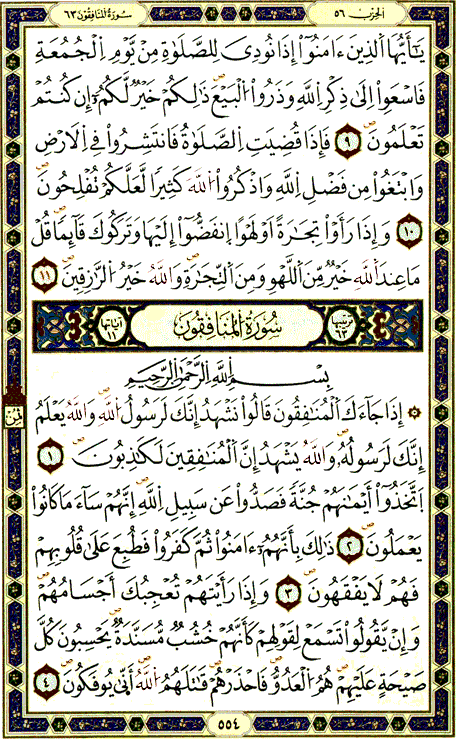 الحزب ٥٦ سورة المنافقون ٦٣
يَـٰٓأَيُّهَا ٱلَّذِينَ ءَامَنُوٓا۟ إِذَا نُودِىَ لِلصَّلَوٰةِ مِن يَوْمِ ٱلْجُمُعَةِ
فَٱسْعَوْا۟ إِلَىٰ ذِكْرِ ٱللَّهِ وَذَرُوا۟ ٱلْبَيْعَ ذَٰلِكُمْ خَيْرٌ لَّكُمُۥٓ إِن كُنتُمْ
تَعْلَمُونَ ٩ فَإِذَا قُضِيَتِ ٱلصَّلَوٰةُ فَٱنتَشِرُوا۟ فِى ٱلْأَرْضِ
وَٱبْتَغُوا۟ مِن فَضْلِ ٱللَّهِ وَٱذْكُرُوا۟ ٱللَّهَ كَثِيرًا لَّعَلَّكُمْ تُفْلِحُونَ
١٠ وَإِذَا رَأَوْا۟ تِجَـٰرَةً أَوْ لَهْوًا ٱنفَضُّوٓا۟ إِلَيْهَا وَتَرَكُوكَ قَآئِمًا قُلْ
مَا عِندَ ٱللَّهِ خَيْرٌ مِّنَ ٱللَّهْوِ وَمِنَ ٱلتِّجَـٰرَةِ وَٱللَّهُ خَيْرُ ٱلرَّٰزِقِينَ ١١
ترتيبها ٦٣ سُورَةُ المُنَافِقُونَ آياتها ١١
بِسْمِ ٱللَّهِ ٱلرَّحْمَـٰنِ ٱلرَّحِيمِ
إِذَا جَآءَكَ ٱلْمُنَـٰفِقُونَ قَالُوا۟ نَشْهَدُ إِنَّكَ لَرَسُولُ ٱللَّهِ وَٱللَّهُ يَعْلَمُ
إِنَّكَ لَرَسُولُهُۥ وَٱللَّهُ يَشْهَدُ إِنَّ ٱلْمُنَـٰفِقِينَ لَكَـٰذِبُونَ ١
ٱتَّخَذُوٓا۟ أَيْمَـٰنَهُمْ جُنَّةً فَصَدُّوا۟ عَن سَبِيلِ ٱللَّهِ إِنَّهُمْ سَآءَ مَا كَانُوا۟
يَعْمَلُونَ ٢ ذَٰلِكَ بِأَنَّهُمُۥٓ ءَامَنُوا۟ ثُمَّ كَفَرُوا۟ فَطُبِعَ عَلَىٰ قُلُوبِهِمْ
فَهُمْ لَا يَفْقَهُونَ ٣ وَإِذَا رَأَيْتَهُمْ تُعْجِبُكَ أَجْسَامُهُمْ
وَإِن يَقُولُوا۟ تَسْمَعْ لِقَوْلِهِمْ كَأَنَّهُمْ خُشُبٌ مُّسَنَّدَةٌ يَحْسِبُونَ كُلَّ
صَيْحَةٍ عَلَيْهِمْ هُمُ ٱلْعَدُوُّ فَٱحْذَرْهُمْ قَـٰتَلَهُمُ ٱللَّهُ أَنَّىٰ يُوفَكُونَ ٤
٥٥٤